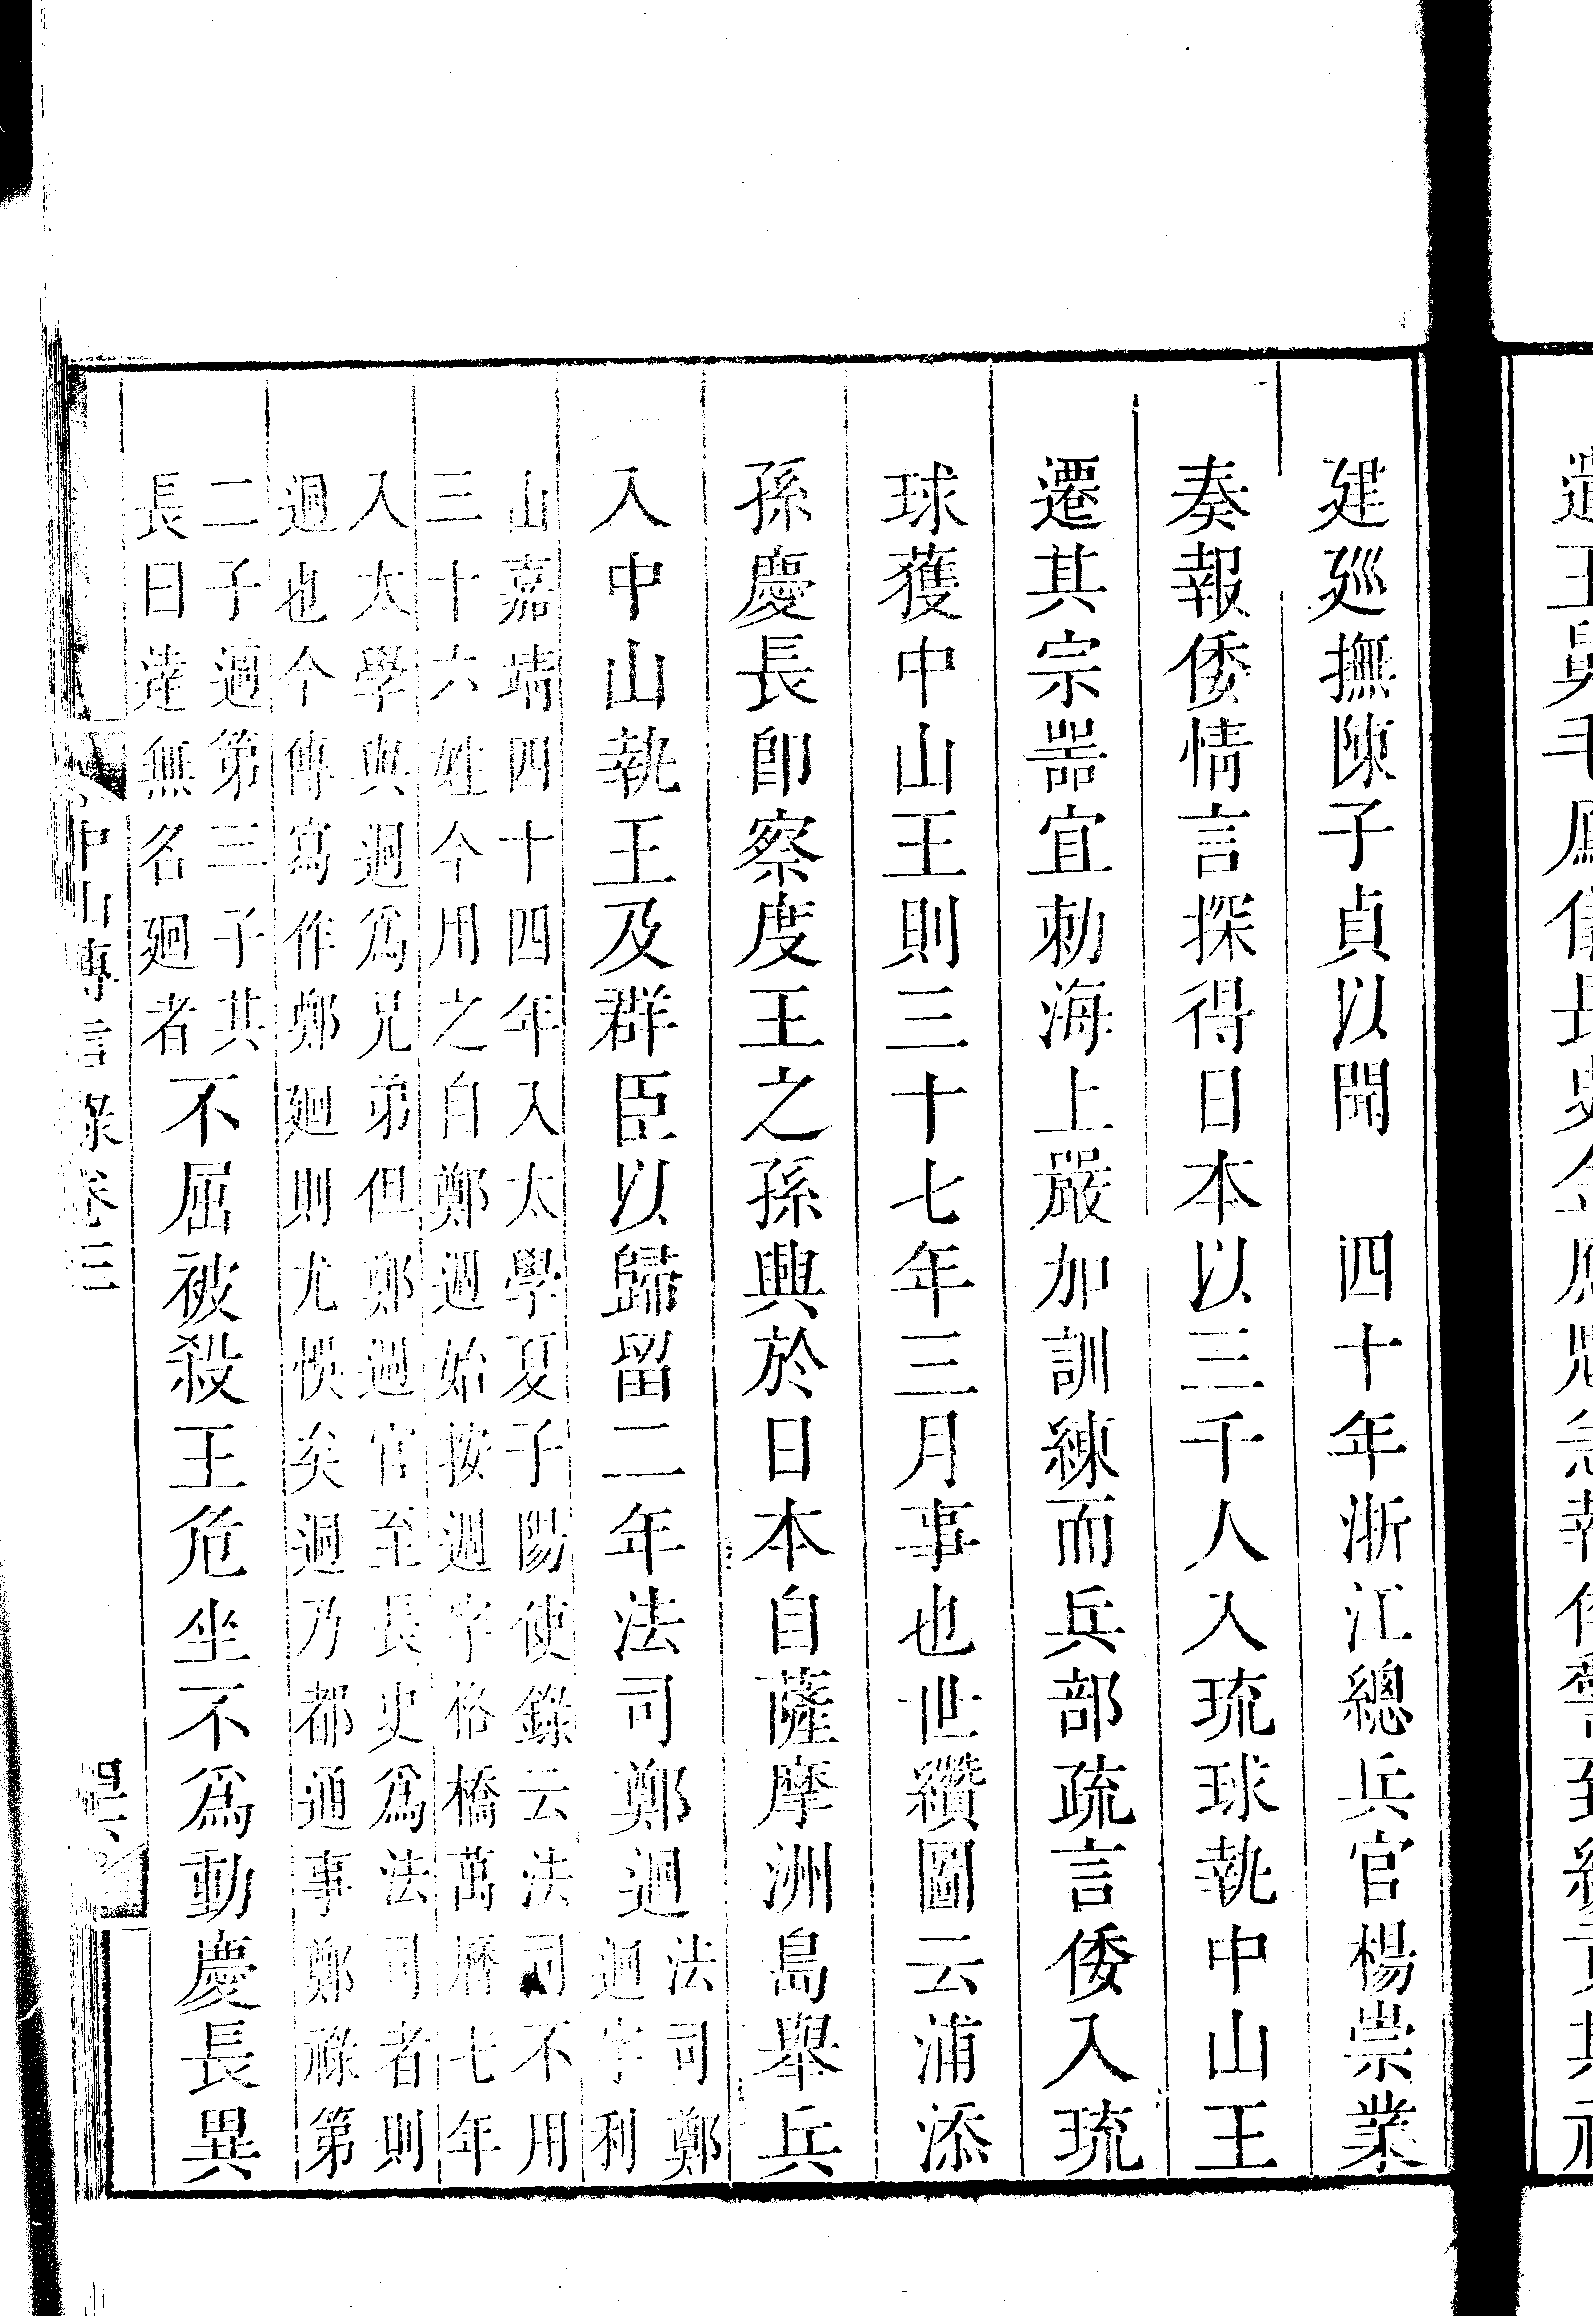 建廵撫陳子貞以聞　四十年浙江總兵官楊崇業
奏報倭情言探得日本以三千人入琉球執中山王
遷其宗噐宜勅海上嚴加訓練而兵部疏言倭入琉
球獲中山王則三十七年三月事也世纘圖云浦添
孫慶長卽察度王之孫興於日本自薩摩洲島舉兵
入中山執王及群臣以歸留二年法司鄭迵
法司鄭
迵字利
山嘉靖四十四年入太學夏子陽使錄云法司不用
三十六姓今用之自鄭迵始按迵字格橋萬曆七年
入太學與迵爲兄弟但鄭迵官至長史爲法司者則
迵也今傳寫作鄭廻則尤悞矣迵乃都通事鄭祿第
二子迵第三子其
長曰達無名廻者
不屈被殺王危坐不爲動慶長異
中山傳信錄卷三